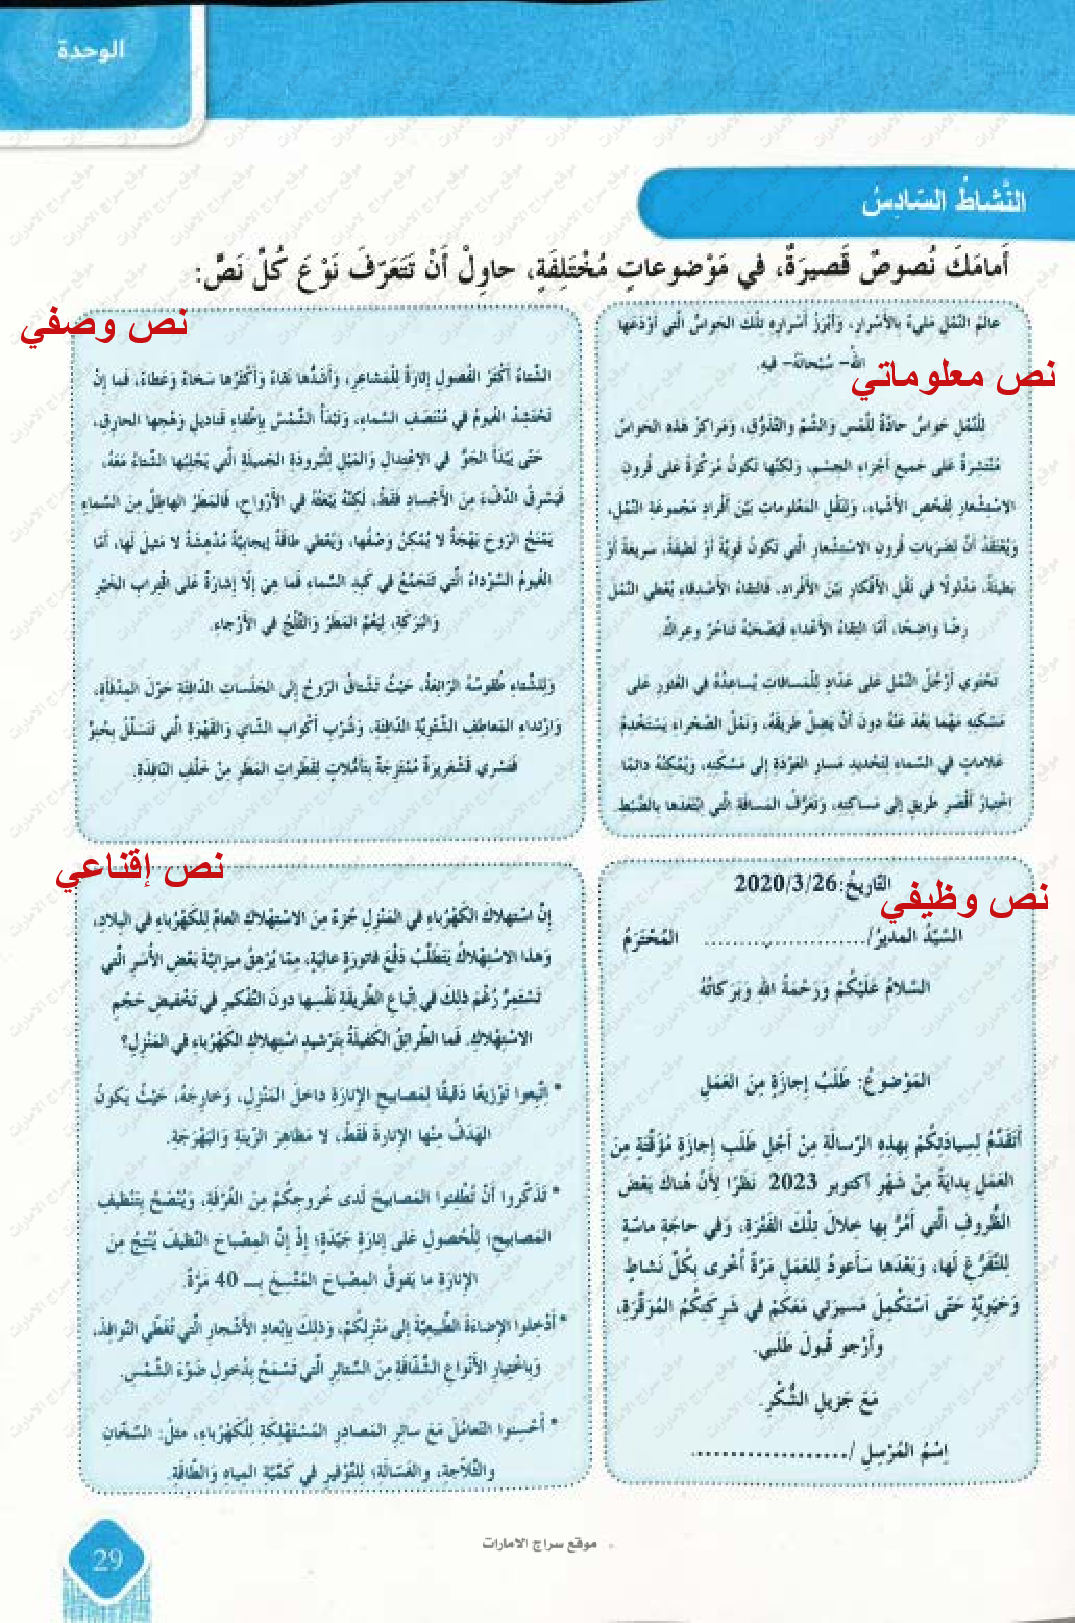 الوحدة
النَّشاطُ السّادِسُ
أَمامَكَ نُصوصٌ قَصيرَةٌ، في مَوْضوعاتٍ مُخْتَلِفَةٍ، حاوِلْ أَنْ تَتَعَرَّفَ نَوْعَ كُلِّ نَصٍّ:
نص معلوماتي
عالَمُ النَّمْلِ مَليءٌ بِالأَسْرارِ، وَأَبْرَزُ أَسْرارِهِ تِلْكَ الحَواسُّ الَّتي أَوْدَعَها
اللهُ- سُبْحانَهُ- فيهِ.
لِلنَّمْلِ حَواسُّ حادَّةٌ لِلَّمْسِ وَالشَّمِّ وَالتَّذَوُّقِ، وَمَراكِزُ هَذِهِ الحَواسِّ
مُنْتَشِرَةٌ عَلى جَميعِ أَجْزاءِ الجِسْمِ، وَلَكِنَّها تَكونُ مُرَكَّزَةً عَلى قُرونِ
الاسْتِشْعارِ لِفَحْصِ الأَشْياءِ، وَلِنَقْلِ المَعْلوماتِ بَيْنَ أَفْرادِ مَجْموعَةِ النَّمْلِ،
وَيُعْتَقَدُ أَنَّ لِضَرَباتِ قُرونِ الاسْتِشْعارِ الَّتي تَكونُ قَوِيَّةً أَوْ لَطيفَةً، سَريعَةً أَوْ
بَطيئَةً، مَدْلولًا في نَقْلِ الأَفْكارِ بَيْنَ الأَفْرادِ، فَالتِقاءُ الأَصْدِقاءِ يُعْطي النَّمْلَ
رِضًا واضِحًا، أَمّا التِقاءُ الأَعْداءِ فَيَصْحَبُهُ تَناحُرٌ وَعِراكٌ.
تَحْتَوي أَرْجُلُ النَّمْلِ عَلى عَدّادٍ لِلْمَسافاتِ يُساعِدُهُ في العُثورِ عَلى
مَسْكَنِهِ مَهْما بَعُدَ عَنْهُ دونَ أَنْ يَضِلَّ طَريقَهُ، وَنَمْلُ الصَّحْراءِ يَسْتَخْدِمُ
عَلاماتٍ في السَّماءِ لِتَحْديدِ مَسارِ العَوْدَةِ إِلى مَسْكَنِهِ، وَيُمْكِنُهُ دائِمًا
اخْتِيارُ أَقْصَرِ طَريقٍ إِلى مَساكِنِهِ، وَتَعَرُّفُ المَسافَةِ الَّتي ابْتَعَدَها بِالضَّبْطِ.
نص وصفي
الشِّتاءُ أَكْثَرُ الفُصولِ إِثارَةً لِلْمَشاعِرِ، وَأَشَدُّها نَقاءً وَأَكْثَرُها سَخاءً وَعَطاءً، فَما إِنْ
تَحْتَشِدُ الغُيومُ في مُنْتَصَفِ السَّماءِ، وَتَبْدَأُ الشَّمْسُ بِإِطْفاءِ قَناديلِ وَهَجِها الحارِقِ،
حَتّى يَبْدَأَ الحَرُّ في الاعْتِدالِ وَالمَيْلِ لِلْبُرودَةِ الجَميلَةِ الَّتي يَجْلِبُها الشِّتاءُ مَعَهُ،
فَيَسْرِقُ الدِّفْءَ مِنَ الأَجْسادِ فَقَطْ، لَكِنَّهُ يَبْعَثُهُ في الأَرْواحِ، فَالمَطَرُ الهاطِلُ مِنَ السَّماءِ
يَمْنَحُ الرّوحَ بَهْجَةً لا يُمْكِنُ وَصْفُها، وَيُعْطي طاقَةً إيجابِيَّةً مُدْهِشَةً لا مَثيلَ لَها، أَمّا
الغُيومُ السَّوْداءُ الَّتي تَتَجَمَّعُ في كَبِدِ السَّماءِ فَما هِيَ إِلّا إِشارَةٌ عَلى اقْتِرابِ الخَيْرِ
وَالبَرَكَةِ، لِيَعُمَّ المَطَرُ وَالثَّلْجُ في الأَرْجاءِ.
وَلِلشِّتاءِ طُقوسُهُ الرّائِعَةُ، حَيْثُ تَشْتاقُ الرّوحُ إِلى الجَلَساتِ الدّافِئَةِ حَوْلَ المِدْفَأَةِ،
وَارْتِداءِ المَعاطِفِ الشِّتْوِيَّةِ الدّافِئَةِ، وَشُرْبِ أَكْوابِ الشّايِ وَالقَهْوَةِ الَّتي تَتَسَلَّلُ بِحُبٍّ
فَتَسْري قُشَعْريرَةٌ مُمْتَزِجَةٌ بِتَأَمُّلاتٍ لِقَطَراتِ المَطَرِ مِنْ خَلْفِ النّافِذَةِ.
نص وظيفي
التّاريخُ: 2020/3/26
السَّيِّدُ المُديرُ/........................ المُحْتَرَمُ
السَّلامُ عَلَيْكُمْ وَرَحْمَةُ اللهِ وَبَرَكاتُهُ
المَوْضوعُ: طَلَبُ إِجازَةٍ مِنَ العَمَلِ
أَتَقَدَّمُ لِسِيادَتِكُمْ بِهذِهِ الرِّسالَةِ مِنْ أَجْلِ طَلَبِ إِجازَةٍ مُؤَقَّتَةٍ مِنَ
العَمَلِ بِدايَةً مِنْ شَهْرِ أُكْتوبر 2023 نَظَرًا لِأَنَّ هُناكَ بَعْضَ
الظُّروفِ الَّتي أَمُرُّ بِها خِلالَ تِلْكَ الفَتْرَةِ، وَفي حاجَةٍ ماسَّةٍ
لِلتَّفَرُّغِ لَها، وَبَعْدَها سَأَعودُ لِلعَمَلِ مَرَّةً أُخْرى بِكُلِّ نَشاطٍ
وَحَيَوِيَّةٍ حَتّى أَسْتَكْمِلَ مَسيرَتي مَعَكُمْ في شَرِكَتِكُمُ المُوَقَّرَةِ،
وَأَرْجو قُبولَ طَلَبي.
مَعَ جَزيلِ الشُّكْرِ.
اِسْمُ المُرْسِلِ /....................
نص إقناعي
إِنَّ اسْتِهْلاكَ الكَهْرَباءِ في المَنْزِلِ جُزْءٌ مِنَ الاسْتِهْلاكِ العامِّ لِلْكَهْرَباءِ في البِلادِ،
وَهَذا الاسْتِهْلاكُ يَتَطَلَّبُ دَفْعَ فاتورَةٍ عالِيَةٍ، مِمّا يُرْهِقُ ميزانِيَّةَ بَعْضِ الأُسَرِ الَّتي
تَسْتَمِرُّ رُغْمَ ذَلِكَ في اتِّباعِ الطَّريقَةِ نَفْسِها دونَ التَّفْكيرِ في تَخْفيضِ حَجْمِ
الاسْتِهْلاكِ. فَما الطَّرائِقُ الكَفيلَةُ بِتَرْشيدِ اسْتِهْلاكِ الكَهْرَباءِ في المَنْزِلِ؟
* اتَّبِعوا تَوْزيعًا دَقيقًا لِمَصابيحِ الإِنارَةِ داخِلَ المَنْزِلِ، وَخارِجَهُ، حَيْثُ يَكونُ
الهَدَفُ مِنْها الإِنارَةَ فَقَطْ، لا مَظاهِرَ الزّينَةِ وَالبَهْرَجَةِ.
* تَذَكَّروا أَنْ تُطْفِئوا المَصابيحَ لَدى خُروجِكُمْ مِنَ الغُرْفَةِ، وَيُنْصَحُ بِتَنْظيفِ
المَصابيحِ؛ لِلْحُصولِ عَلى إِنارَةٍ جَيِّدَةٍ؛ إِذْ إِنَّ المِصْباحَ النَّظيفَ يُنْتِجُ مِنَ
الإِنارَةِ ما يَفوقُ المِصْباحَ المُتَّسِخَ بِـــ 40 مَرَّةً.
* أَدْخِلوا الإِضاءَةَ الطَّبيعِيَّةَ إِلى مَنْزِلِكُمْ، وَذَلِكَ بِإِبْعادِ الأَشْجارِ الَّتي تُغَطّي النَّوافِذَ،
وَبِاخْتِيارِ الأَنْواعِ الشَّفّافَةِ مِنَ السَّتائِرِ الَّتي تَسْمَحُ بِدُخولِ ضَوْءِ الشَّمْسِ.
* أَحْسِنوا التَّعامُلَ مَعَ سائِرِ المَصادِرِ المُسْتَهْلِكَةِ لِلْكَهْرَباءِ، مِثْلِ: السَّخّانِ
وَالثَّلّاجَةِ، وَالغَسّالَةِ؛ لِلتَّوْفيرِ في كَمِّيَّةِ المِياهِ وَالطّاقَةِ.
موقع سراج الامارات
29